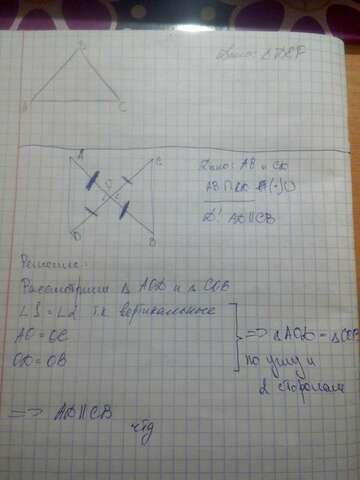 Дано: △DEF
B
C
A
C
O
D
B
Дано: AB и CD
AB∩CD в (·)O
D: AD||CB
Решение:
Рассмотрим △ AOD и △ COB
∠1=∠2 т.к вертикальные
AO = OC
OD = OB
=> △AOD = △COB
по углу и
2 сторонам
=> AD||CB
чтд